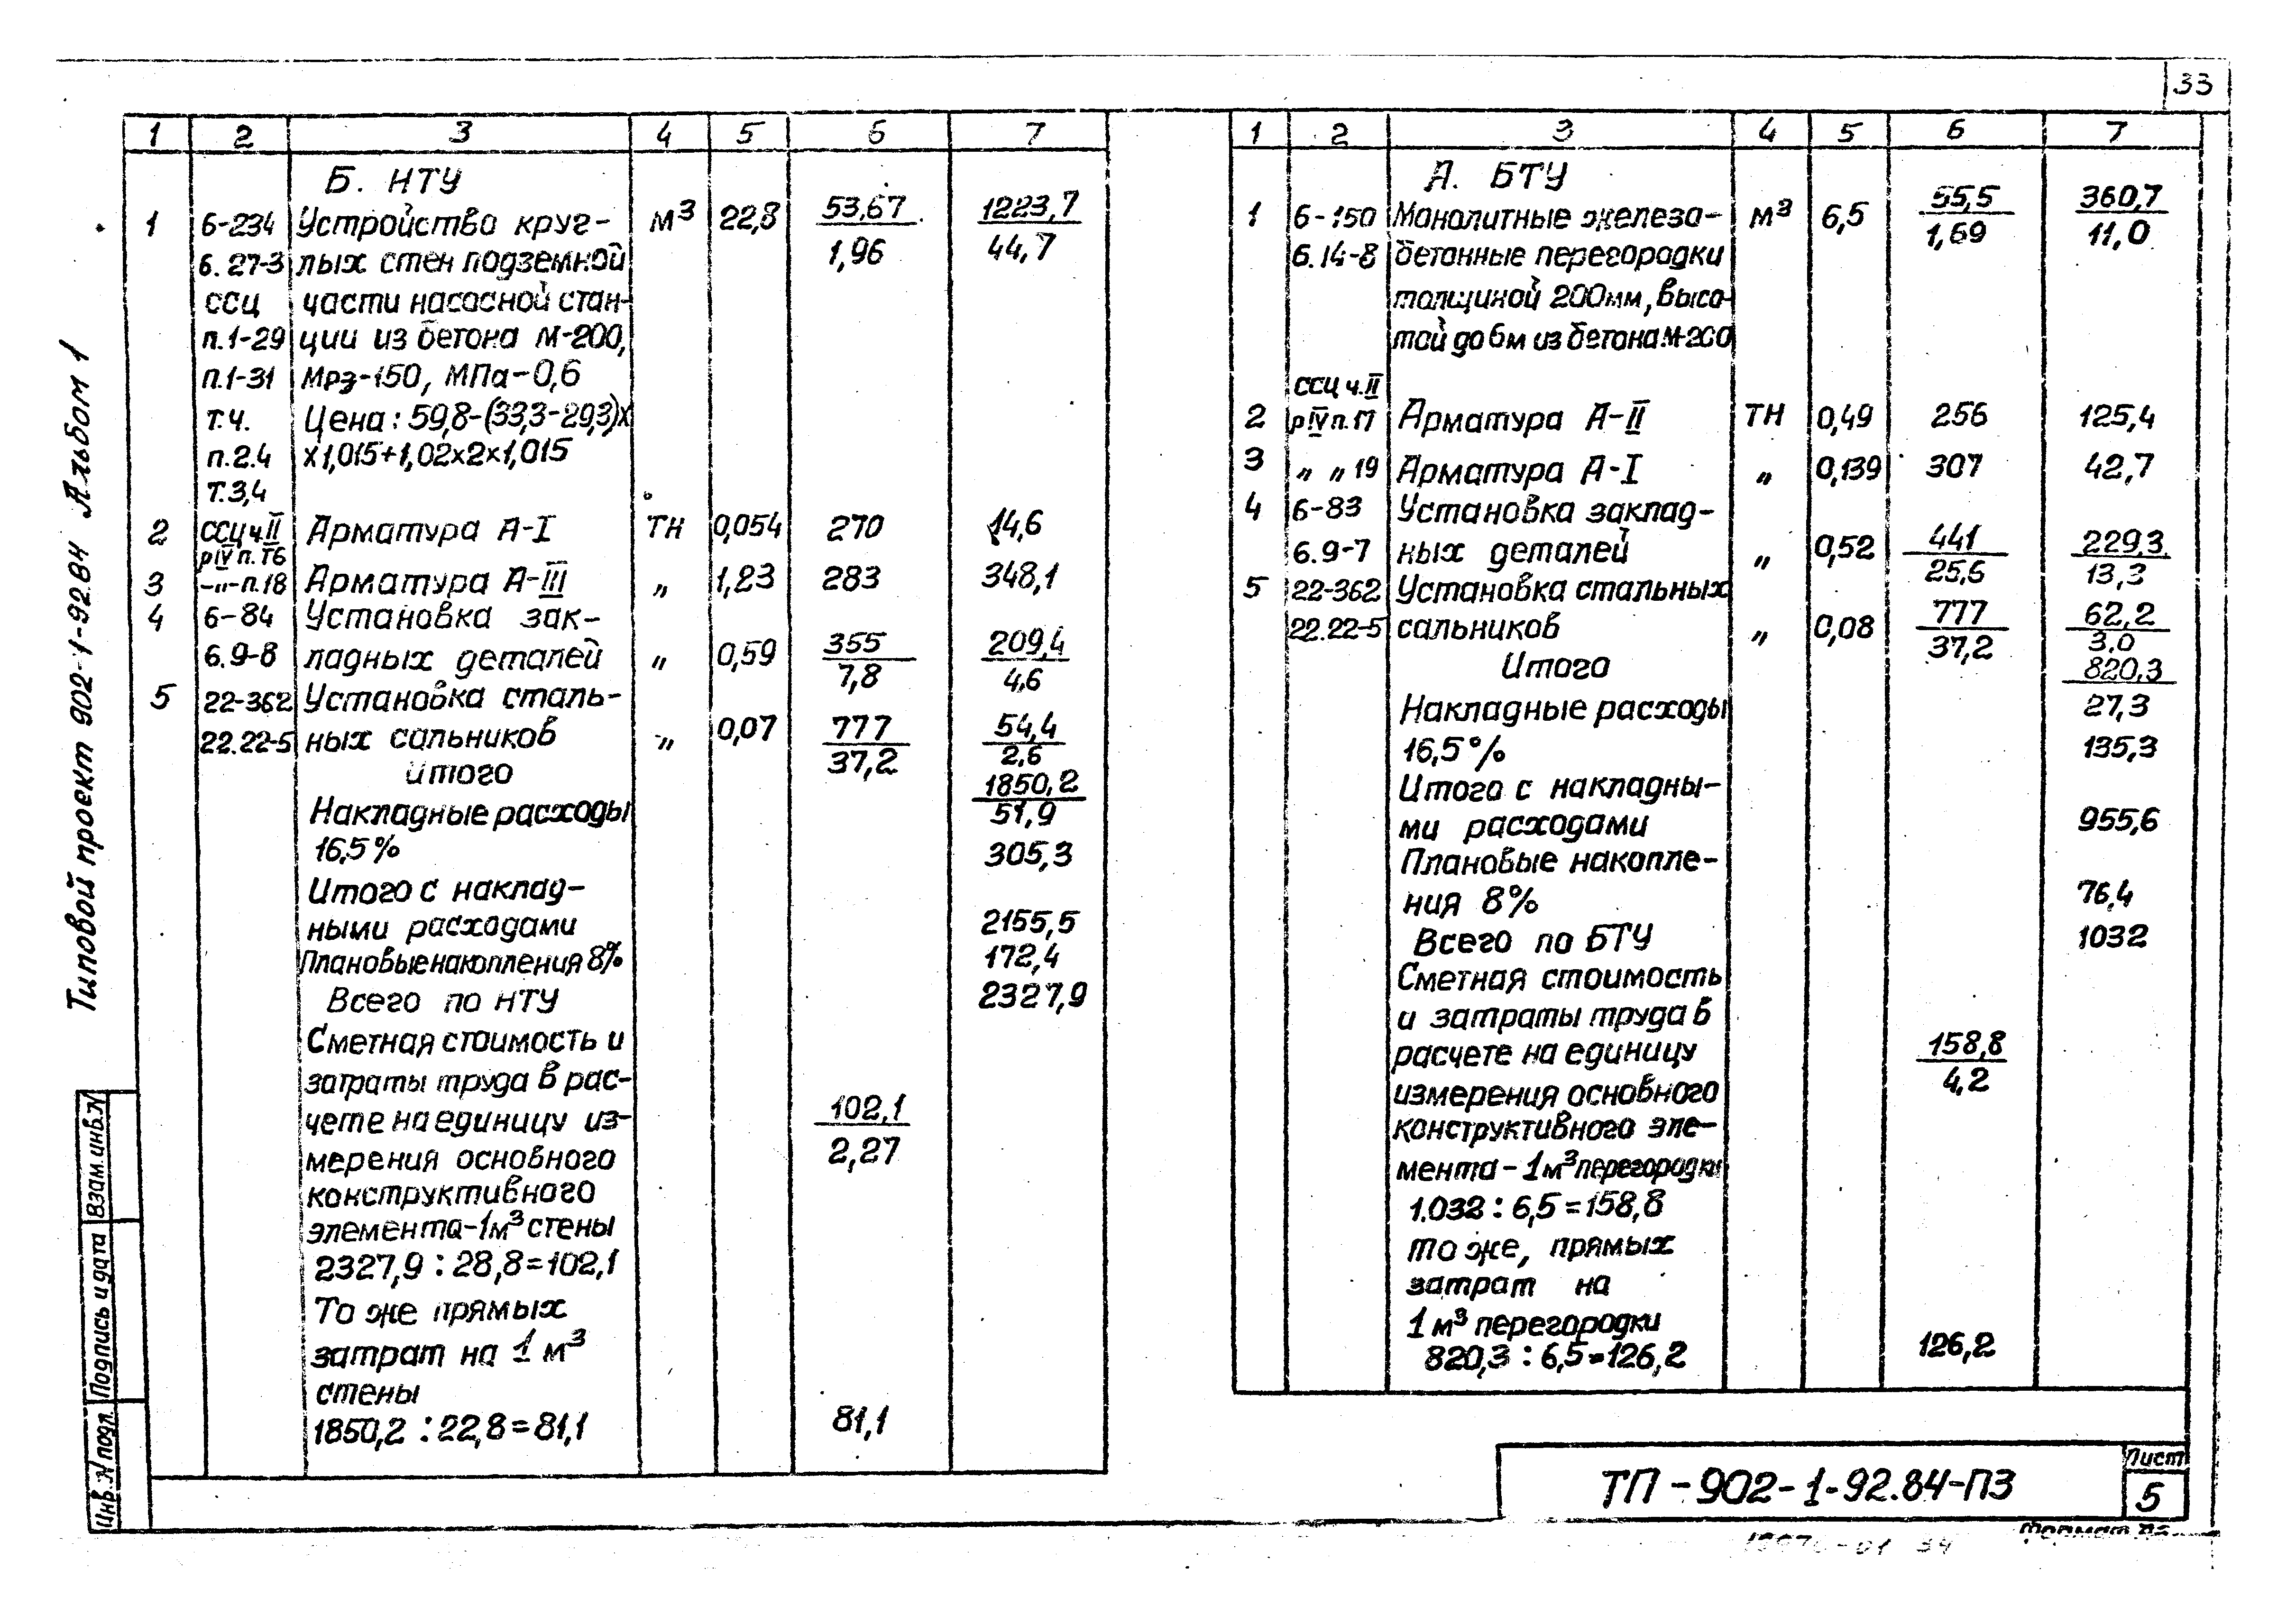 33
Типовой проект 902-1-92.84 Альбом 1
1 2 3 4 5 6 7
Б. НТУ
1 6-234 Устройство круг- м³ 22,8 53,67 1223,7
6.27-3 лых стен подземной 1,96 44,7
ССЦ части насосной стан-
п.1-29 ции из бетона М-200,
п.1-31 Мрз-150, МПа-0,6
т.ч. Цена: 59,8-(33,3-29,3)х
п.2.4 х1,015+1,02х2х1,015
т.3,4
2 ССЦ ч.II Арматура А-I ТН 0,054 270 14,6
рIV п.16
3 -„-п.18 Арматура А-III „ 1,23 283 348,1
4 6-84 Установка зак-
6.9-8 ладных деталей „ 0,59 355 209,4
7,8 4,6
5 22-362 Установка сталь-
22.22-5 ных сальников „ 0,07 777 54,4
37,2 2,6
Итого 1850,2
Накладные расходы 51,9
16,5% 305,3
Итого с наклад-
ными расходами 2155,5
Плановые накопления 8% 172,4
Всего по НТУ 2327,9
Сметная стоимость и
затраты труда в рас-
чете на единицу из- 102,1
мерения основного 2,27
конструктивного
элемента-1м³ стены
2327,9 : 28,8=102,1
То же прямых
затрат на 1 м³
стены
1850,2 : 22,8=81,1 81,1
1 2 3 4 5 6 7
А. БТУ
1 6-150 Монолитные железо- м³ 6,5 55,5 360,7
6.14-8 бетонные перегородки 1,69 11,0
толщиной 200мм, высо-
той до 6м из бетона М-200
ССЦ ч.II
2 рIV п.17 Арматура А-II ТН 0,49 256 125,4
3 „ „ 19 Арматура А-I „ 0,139 307 42,7
4 6-83 Установка заклад-
6.9-7 ных деталей „ 0,52 441 229,3
25,6 13,3
5 22-362 Установка стальных
22.22-5 сальников „ 0,08 777 62,2
37,2 3,0
Итого 820,3
Накладные расходы 27,3
16,5% 135,3
Итого с накладны-
ми расходами 955,6
Плановые накопле-
ния 8% 76,4
Всего по БТУ 1032
Сметная стоимость
и затраты труда в
расчете на единицу 158,8
измерения основного 4,2
конструктивного эле-
мента-1м³ перегородки
1.032 : 6,5=158,8
то же, прямых
затрат на
1 м³ перегородки
820,3 : 6,5=126,2 126,2
Взам.инв.N
Подпись и дата
Инв.N подл.
ТП-902-1-92.84-ПЗ
Лист
5
34